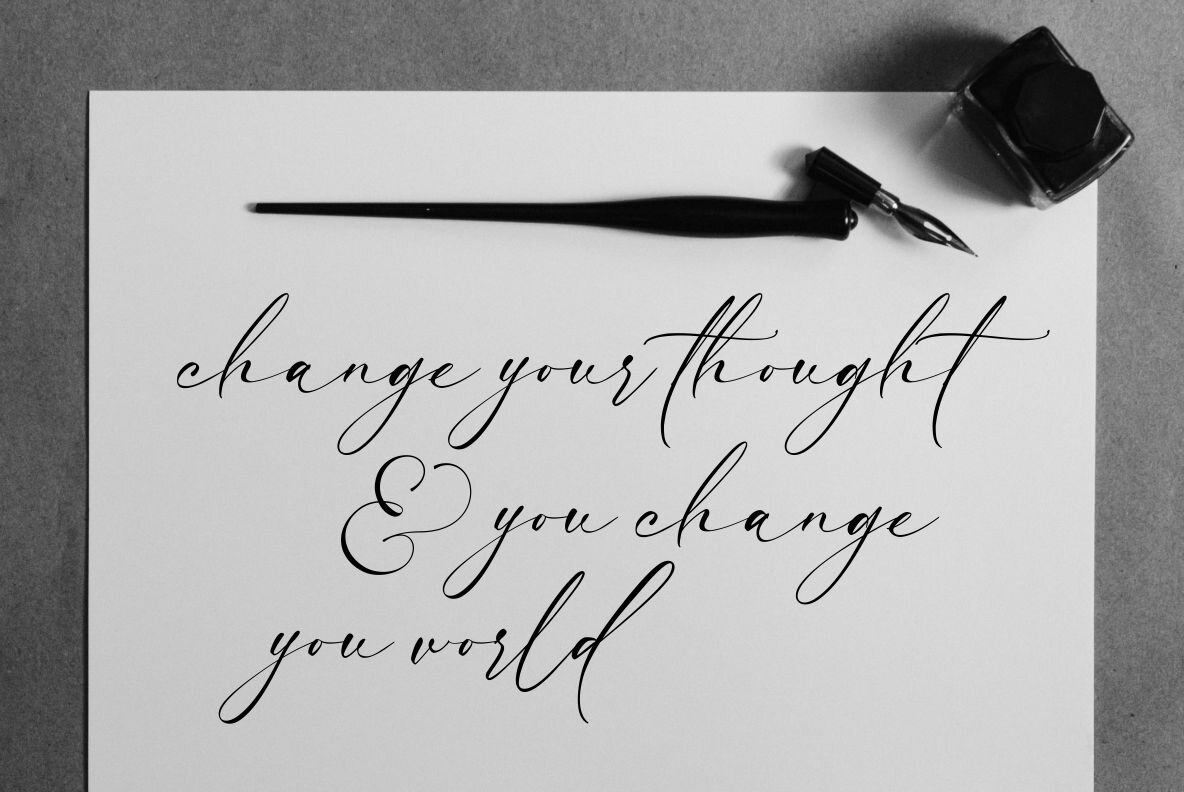 change your thought
& you change
you vorld